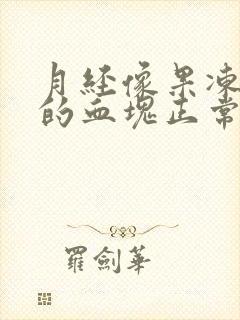 月经像果凍
的血塊正常
羅劍華